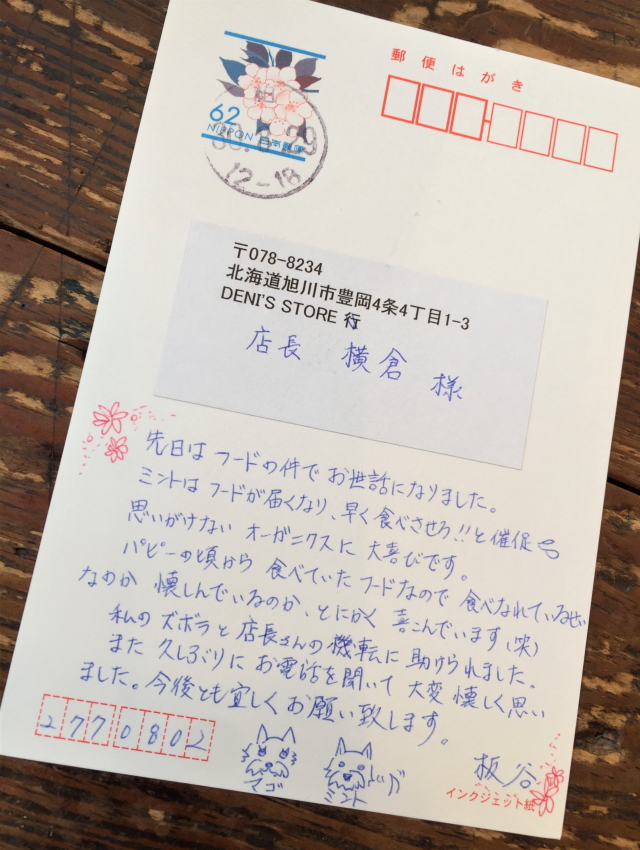 郵便はがき
62
NIPPON 日本郵便
12-18
〒078-8234
北海道旭川市豊岡4条4丁目1-3
DENI'S STORE 行
店長 横倉 様
先日は フードの件で お世話になりました。
ミントは フードが届くなり、早く食べさせろ!!と催促
思いがけない オーガニクスに 大喜びです。
パピーの頃から 食べていたフードなので 食べなれているせい
なのか 懐しんでいるのか、とにかく 喜こんでいます(笑)
私の ズボラと店長さんの機転に 助けられました。
また 久しぶりに お電話を聞いて 大変 懐しく思い
ました。今後とも宜しくお願い致します。
2770802
マゴ
ミント
板谷
インクジェット紙